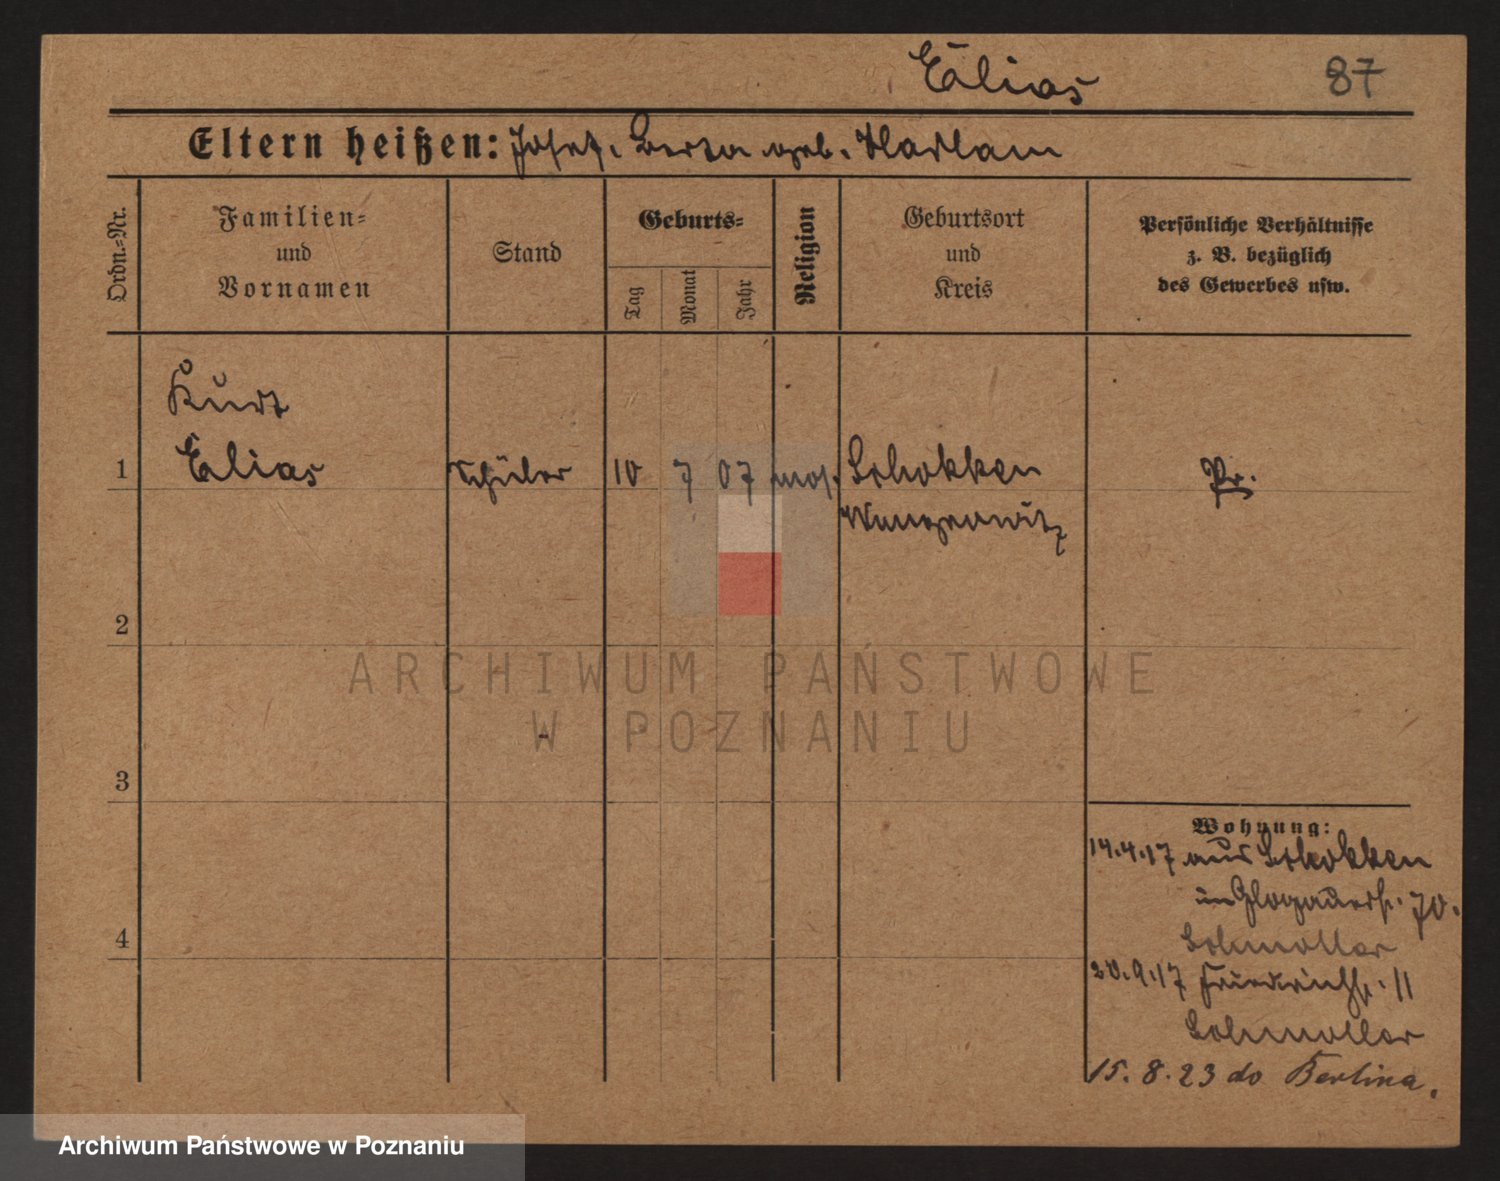 Elias 87
Eltern heißen: Josef. Berta geb. Harlam
Ordn.-Nr.
Familien-
und
Vornamen
Stand
Geburts-
Tag
Monat
Jahr
Religion
Geburtsort
und
Kreis
Persönliche Verhältnisse
z. B. bezüglich
des Gewerbes usw.
Kurt
1 Elias Schüler 10 7 07 mos. Schokken Pr.
Wongrowitz
2
ARCHIWUM PAŃSTWOWE
W POZNANIU
3
Wohnung:
14.4.17 aus Schokken
in Glogauerstr. 70.
4
20.9.17 Friedrichstr. 11
15.8.23 do Berlina.
Archiwum Państwowe w Poznaniu